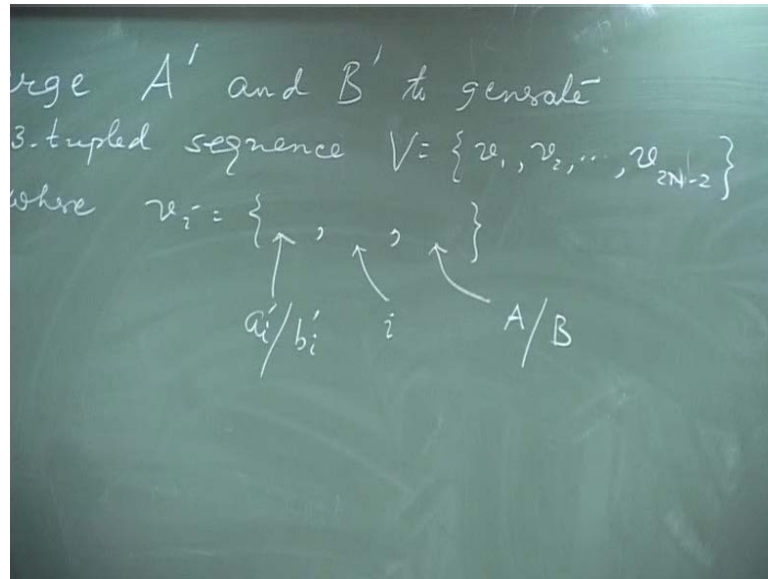 rge A' and B' to generate
3-tupled sequence V = {v₁, v₂, ..., v₂N-2}
where vᵢ = { , , }
aᵢ'/bᵢ' i A/B